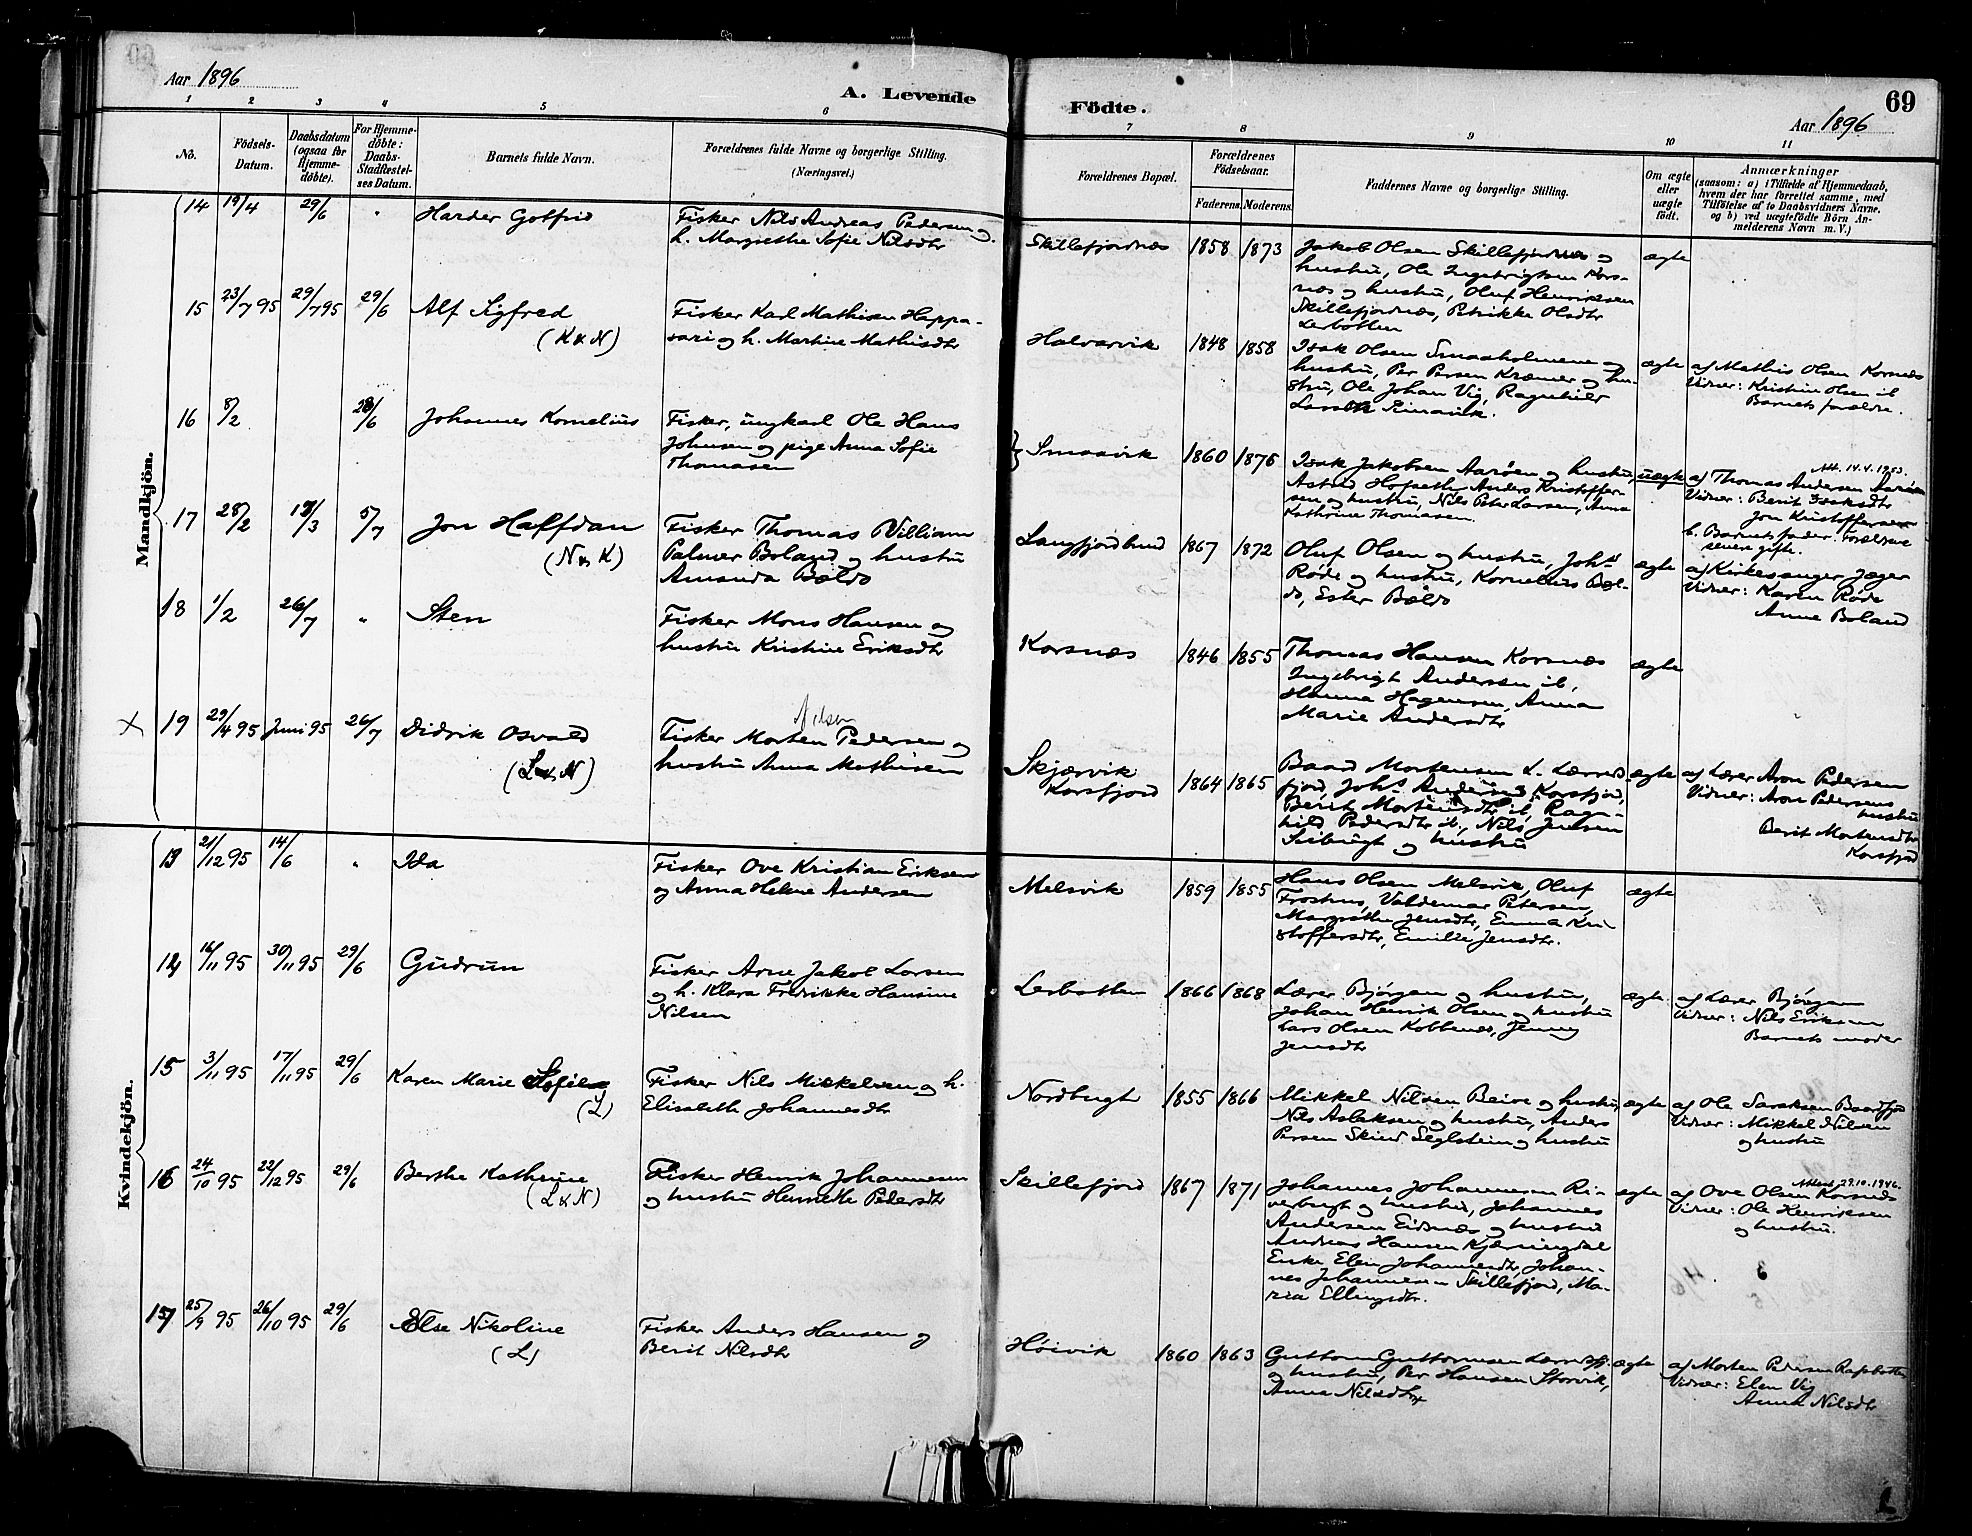 69
Aar 1896
A. Levende
Födte.
Aar 1896
1 2 3 4 5 6 7 8 9 10 11
No.
Födsels-Datum.
Daabsdatum (ogsaa for Hjemme-döbte).
For Hjemme-döbte: Daabs-Stadfæstel-ses Datum.
Barnets fulde Navn.
Forældrenes fulde Navne og borgerlige Stilling.
(Næringsvei.)
Forældrenes Bopæl.
Forældrenes Födselsaar.
Faderens. Moderens.
Faddernes Navne og borgerlige Stilling.
Om ægte eller uægte födt.
Anmærkninger
(saasom: a) i Tilfælde af Hjemmedaab,
hvem der har forrettet samme, med
Tilföielse af to Daabsvidners Navne,
og b) ved uægtefödte Börn An-
melderens Navn m. V.)
Mandkjön.
14 19/4 29/6 " Harder Gotfrid
Fisker Nils Andreas Pedersen og
h. Margrethe Sofie Nilsdtr
Skillefjordnæs 1858 1873
Jakob Olsen Skillefjordnæs og
hustru, Ole Ingebrigtsen Kors-
næs og hustru, Oluf Henriksen
Skillefjordnæs, Petrikke Olsdtr
Lerbotten
ægte
15 23/7 95 29/7 95 29/6 Alf Sigfred
(K & N)
Fisker Karl Mathisen Happa-
vari og h. Martine Mathisdtr
Halvarvik 1848 1858
Isak Olsen Smaaholmene og
hustru, Per Persen Kræmer og hu-
stru, Ole Johan Vig, Ragnhild
ægte
af Mathis Olsen Korsnæs
Vidner: Kristine Olsen ib
Barnets forældre.
16 8/2 28/6 Johannes Kornelius
Fisker, ungkarl Ole Hans
Johnsen og pige Anna Sofie
Thomasen
Smaavik 1860 1876
Isak Jakobsen Aarøen og hustru,
Astrid Hofseth, Anders Kristoffer-
sen og hustru, Nils Peter Larsen, Anna
Kathrine Thomasen.
uægte
Att. 14.4.1953.
af Thomas Andersen Aarøen
Vidner: Berit Isaksdtr
Jon Kristoffersen
b. Barnets fader. Forældrene
senere gifte.
17 28/2 13/3 5/7 Jon Halfdan
(N & K)
Fisker Thomas William
Palmer Boland og hustru
Amanda Bældo
Langfjordbund 1867 1872
Oluf Olsen og hustru, Johs
Røde og hustru, Kornelius Bæl-
do, Ester Bældo
ægte
af Kirkesanger Jæger
Vidner: Karen Røde
Anne Boland
18 1/2 26/7 " Sten
Fisker Mons Hansen og
hustru Kristine Eriksdtr
Korsnæs 1846 1855
Thomas Hansen Korsnæs
Ingebrigt Andersen ib,
Hanna Hagensen, Anna
Marie Andersdtr
ægte
X 19 29/4 95 Juni 95 26/7 Didrik Osvald
(L & N)
Nilsen
Fisker Morten Pedersen og
hustru Anna Mathisen
Skjærvik
Korsfjord
1864 1865
Baard Mortensen L. Lerres-
fjord, Johs Andersen Korsfjord,
Berit Mortensdtr ib, Ragn-
hild Pedersdtr ib, Nils Jensen
og hustru
ægte
af Lærer Aron Pedersen
Vidner: Aron Pedersens
hustru
Berit Mortensdtr
Korsfjord
Kvindekjön.
13 21/12 95 14/6 " Ida
Fisker Ove Kristian Eriksen
og Anna Helene Andersen
Melsvik 1859 1855
Hans Olsen Melsvik, Oluf
Frosthus, Valdemar Petersen,
Margrethe Jensdtr, Emma Kri-
stoffersdtr, Emilie Jensdtr.
ægte
14 16/11 95 30/11 95 29/6 Gudrun
Fisker Arne Jakob Larsen
og h. Klara Fredrikke Hansine
Nilsen
Lerbotten 1866 1868
Lærer Bjørgan og hustru,
Johan Henrik Olsen og hustru
Lars Olsen Kobbnæs, Jenny
Jensdtr
ægte
af Lærer Bjørgan
Vidner: Nils Eriksen
Barnets moder
15 3/11 95 17/11 95 29/6 Karen Marie Sofie
(L)
Fisker Nils Mikkelsen og h.
Elisabeth Johannesdtr
Nordbugt 1855 1866
Mikkel Nilsen Beive og hustru,
Nils Aslaksen og hustru, Anders
Persen Skind Seglstein og hustru
ægte
af Ole Isaksen
Vidner: Mikkel Nilsen
og hustru
16 24/10 95 22/12 95 29/6 Berthe Kathrine
(L & N)
Fisker Henrik Johannesen
og hustru Henrethe Pedersdtr
Skillefjord 1867 1871
Johannes Johannesen Ri-
verbugt og hustru, Johannes
Andersen Eidsnæs og hustru
Andreas Hansen Kjærringdal
Enke Elen Johannesdtr, Johan-
nes Johannesen Skillefjord, Ma-
ria Ellingsdtr.
ægte
Attest 29.10.1946.
af Ove Olsen Korsnæs
Vidner: Ole Henriksen
og hustru.
17 25/9 95 26/10 95 29/6 Else Nikoline
(L)
Fisker Anders Hansen og
Berit Nilsdtr
Høivik 1860 1863
Guttorm Guttormsen Lerresfj.
og hustru, Per Hansen Storvik,
Anna Nilsdtr
ægte
af Morten Pedersen Rafsbotten
Vidner: Elen Vig
Anna Nilsdtr